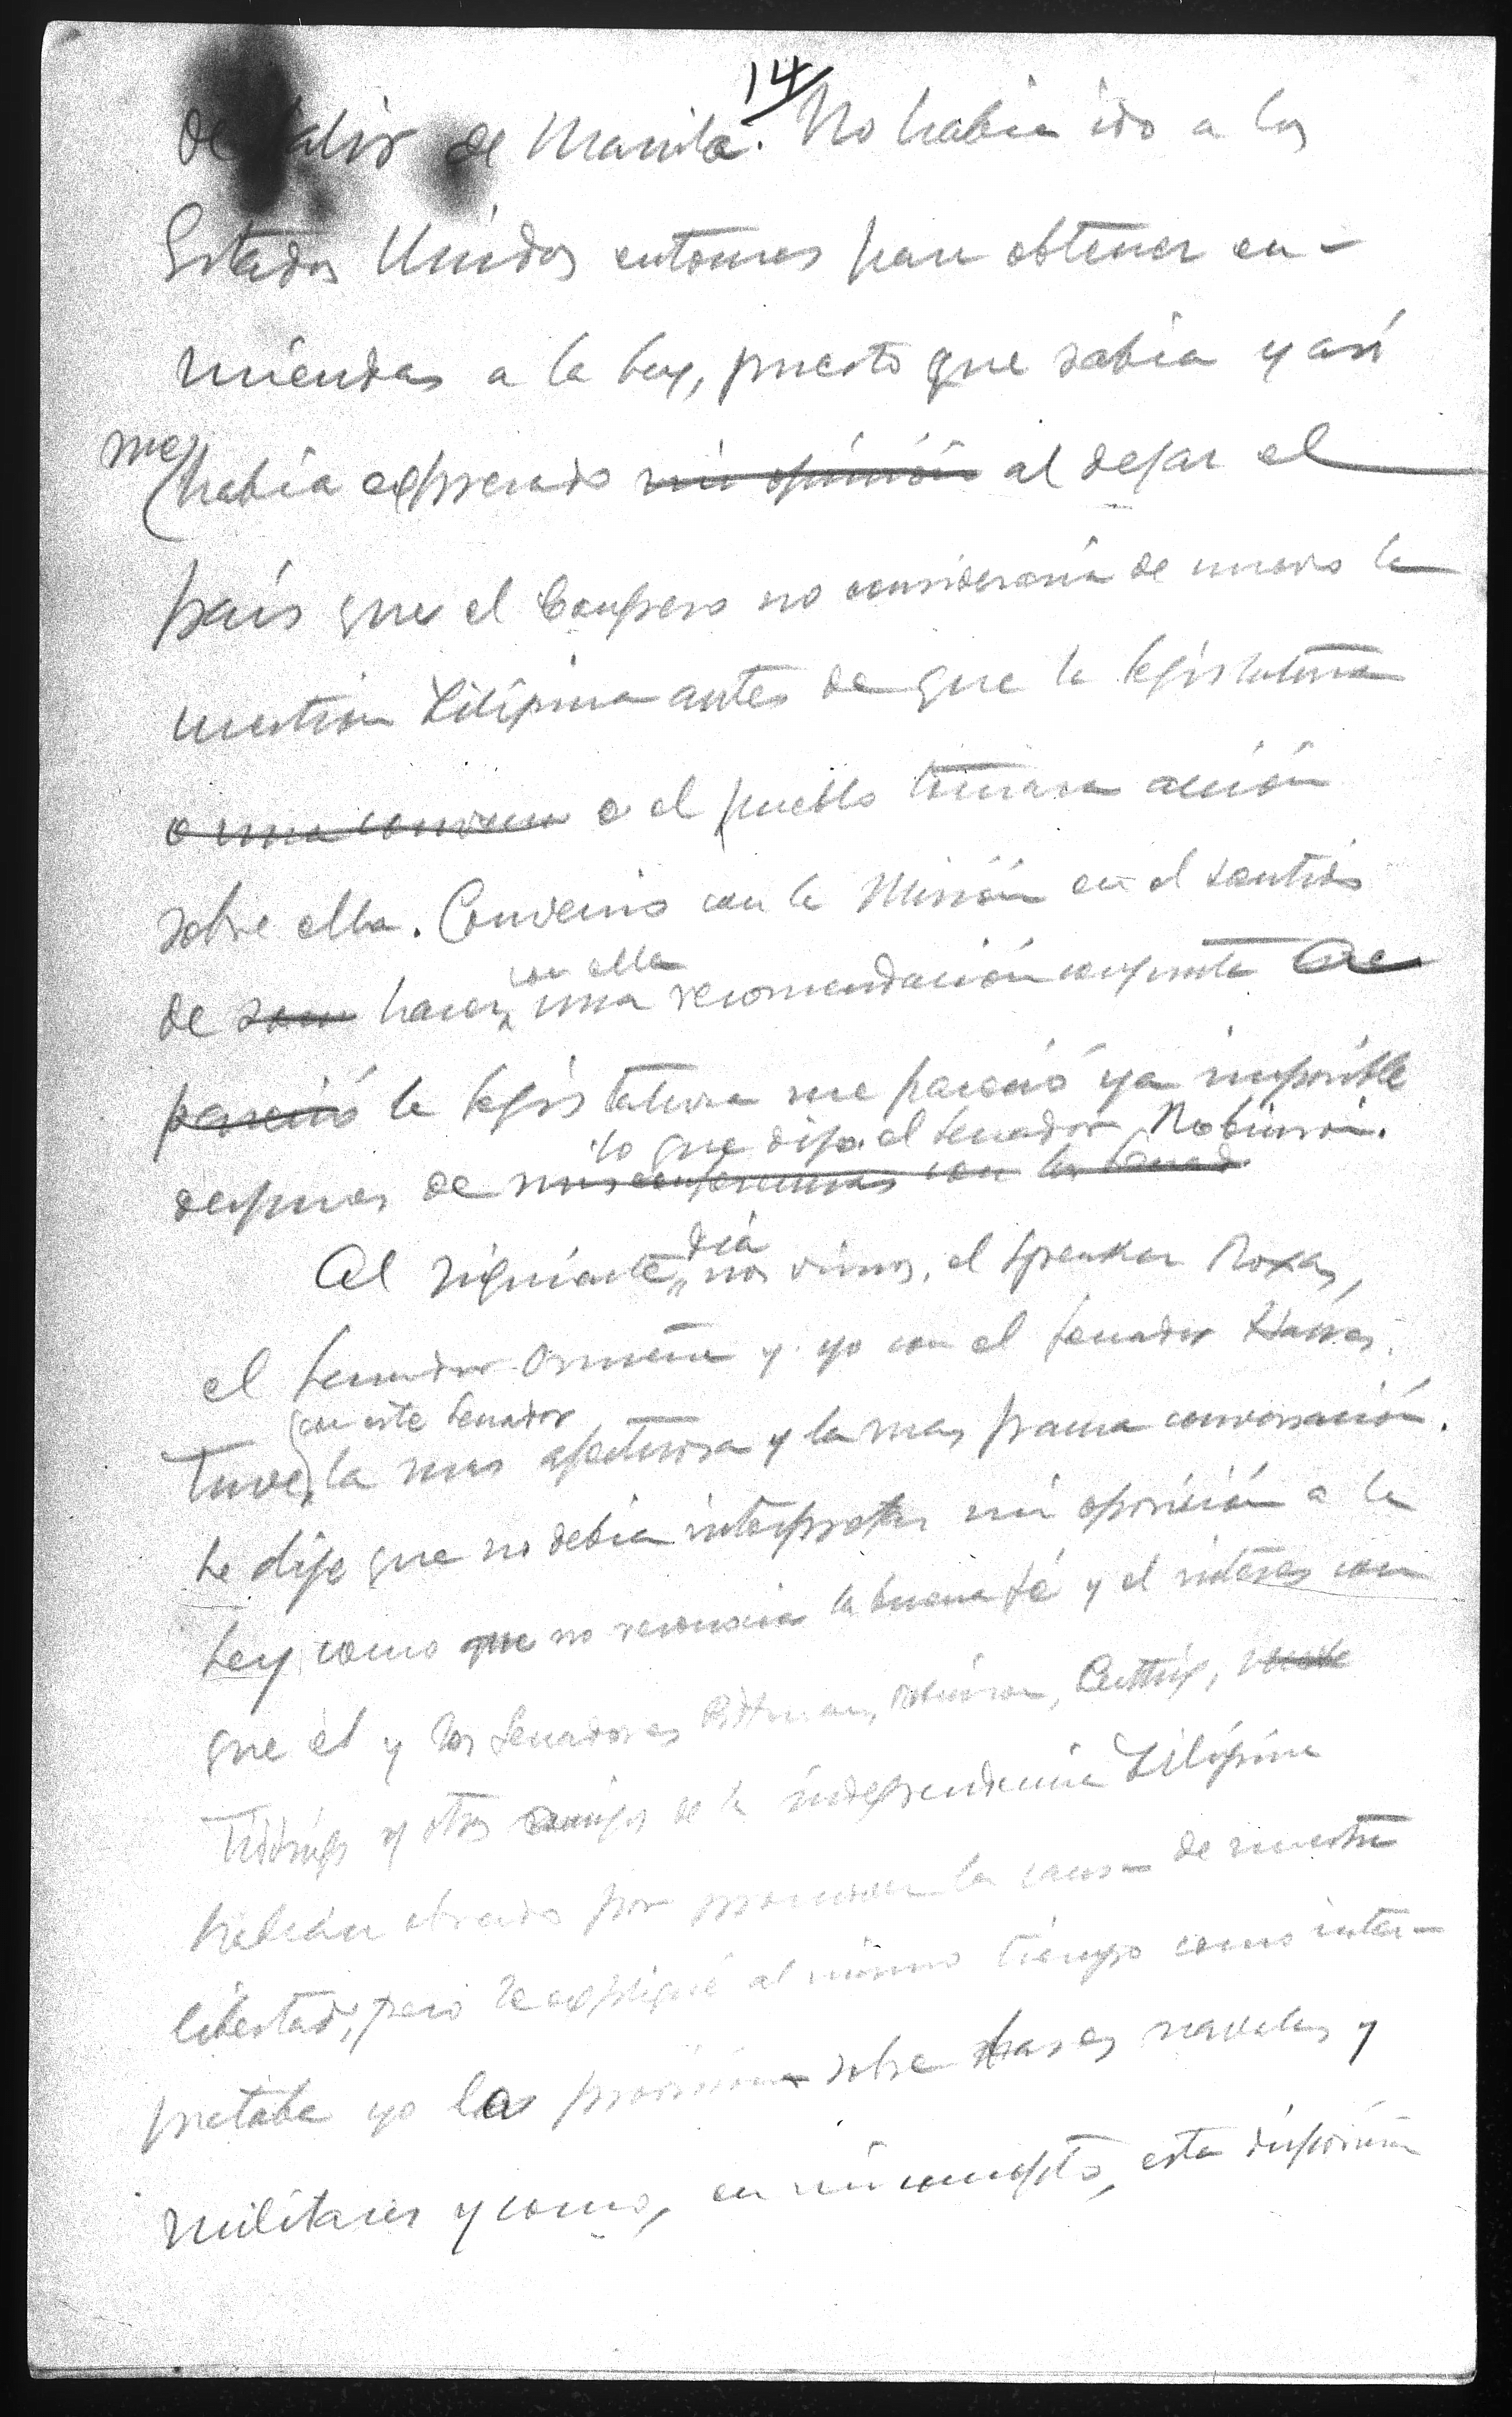 14
de salir de Manila. No habia ido a los
Estados Unidos entonces para obtener en-
miendas a la Ley, puesto que sabia y así
me había expresado mi opinión al dejar el
país que el Congreso no consideraria de nuevo la
cuestion Filipina antes de que la legislatura
o una conven o el pueblo tomara acción
sobre ella. Convenio con la Misión en el sentido
con ella
de hacer una recomendación conjunta a
pareció la legislatura me pareció ya imposible
lo que dijo el Senador Robinson.
despues de mis conferencias con los Senad
dia
Al siguiente nos vimos, el Speaker Roxas,
el Senador Osmeña y yo con el Senador Hawes.
con este Senador
Tuve la mas afectuosa y la mas franca conversación.
Le dije que no debia interpretar mi oposición a la
Ley como que no reconocia la buena fé y el interes con
que él y los Senadores Pittman, Robinson, Cutting,
Tidings y otros amigos de la independencia Filipina
habian obrado por promover la causa de nuestra
libertad, pero le expliqué al mismo tiempo como inter-
pretaba yo la provision sobre bases navales y
militares y como, en mi concepto, esta disposición